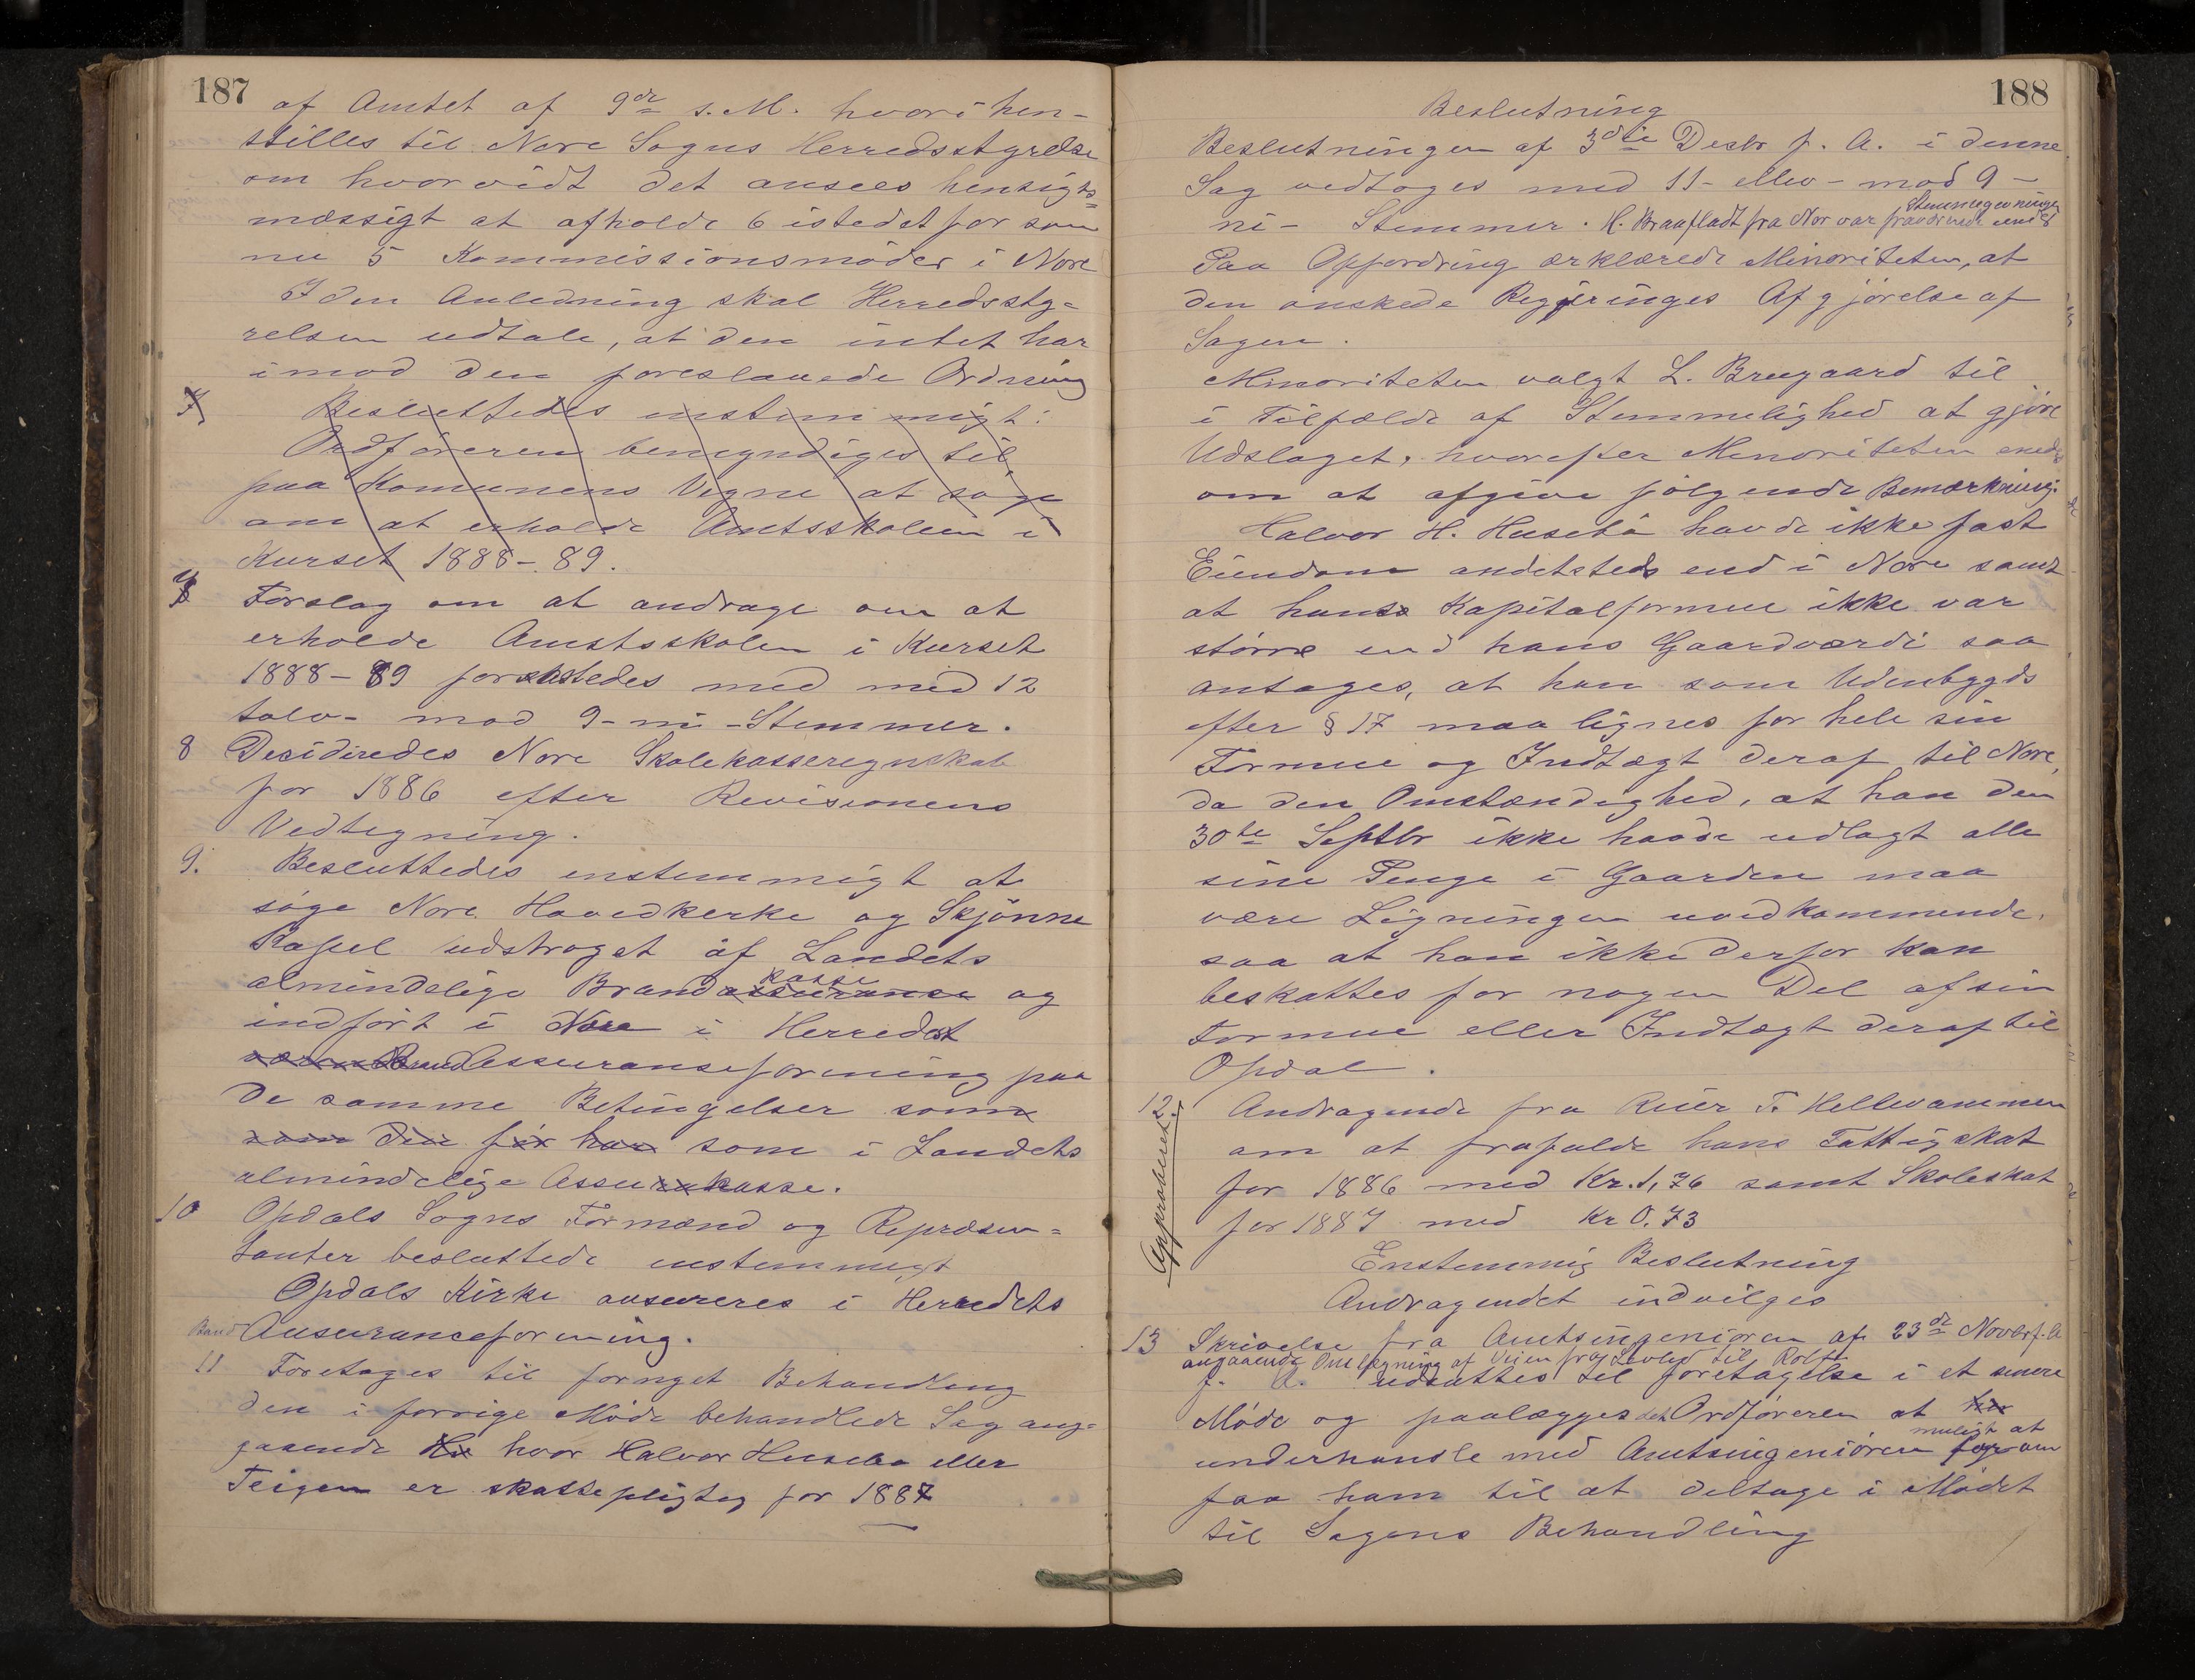 187
af Amtet af 9de s. M. hvori hen-
stilles til Nore Sogns Herredsstyrelse
om hvorvidt det ansees hensigts=
mæssigt at afholde 6 istedetfor som
nu 5 Kommissionsmøder i Nore
I den Anledning skal Herredssty=
relsen udtale, at den intet har
imod den foreslaaede Ordning
7 Besluttedes enstemmigt:
Ordføreren bemyndiges til
paa Komunens Vegne at søge
om at erholde Amtsskolen i
Kurset 1888-89.
7 Forslag om at andrage om at
erholde Amstsskolen i Kurset
1888-89 forkastedes med med 12
tolv- mod 9-ni-Stemmer.
8 Desideredes Nore Skolekasseregnskab
for 1886 efter Revisionens
Vedtegning.
9. Besluttedes enstemmigt at
søge Nore Hovedkerke og Skjønne
Kapel udstroget af Landets
kasse
almindelige Brandassuranse og
indført i Nore i Herredet
Brand Assuranseforening paa
de samme Betingelser som
som den før har som i Landets
almindelige Assurakasse.
10 Opdals Sogns Formænd og Repræsen=
tanter besluttede enstemmigt
Opdals Kirke ansureres i Herredets
Brand Ansuranceforening.
11 Foretoges til fornyet Behandling
den i forrige Møde behandlede Sag ang=
aaende Hv hvor Halvor Husebø eller
Teigen er skattepligtig for 1887
188
Beslutning
Beslutningen af 3die Decbr f. A. i denne
Sag vedtoges med 11- ellev- mod 9-
Stemmegevningen
ni- Stemmer. H. Braafladt fra Nor var fraværende und
Paa Opfordring erklærede Minoriteten, at
den ønskede Regjeringes Afgjørelse af
Sagen.
Minoriteten valgt L. Brugaard til
i Tilfælde af Stemmelighed at gjøre
Udslaget, hvorefter Menoriteten enedes
om at afgive følgende Bemærkning:
Halvor H. Husebø havde ikke fast
Eiendom andetsteds end i Nore samt
at hans Kapitalformue ikke var
større end hans Gaardværdi saa
antages, at han som Udenbygds
efter § 17 maa lignes for hele sin
Formue og Indtægt deraf til Nore,
da den Omstændighed, at han den
30te Septbr ikke havde udlagt alle
sine Penge i Gaarden maa
være Ligningen uvedkommende,
saa at han ikke derfor kan
beskattes for nogen Del af sin
Formue eller Indtægt deraf til
Opdal.
Approberet.
12. Andragende fra Reier T. Hellevammen
om at frafalde hans Fattigskat
for 1886 med Kr. 1,76 samt Skoleskat
for 1887 med Kr 0.73
Enstemmig Beslutning
Andragendet indvilges
13 Skrivelse fra Amtsingeniøren af 23de Novbr f. A
angaaende Omlægning af Veien fra Levled til Rolf
f. A. udsattes til foretagelse i et senere
Møde og paalægges det Ordføreren at
muligt at
underhandle med Amtsingeniøren for om
faa ham til at deltage i Mødet
til Sagens Behandling